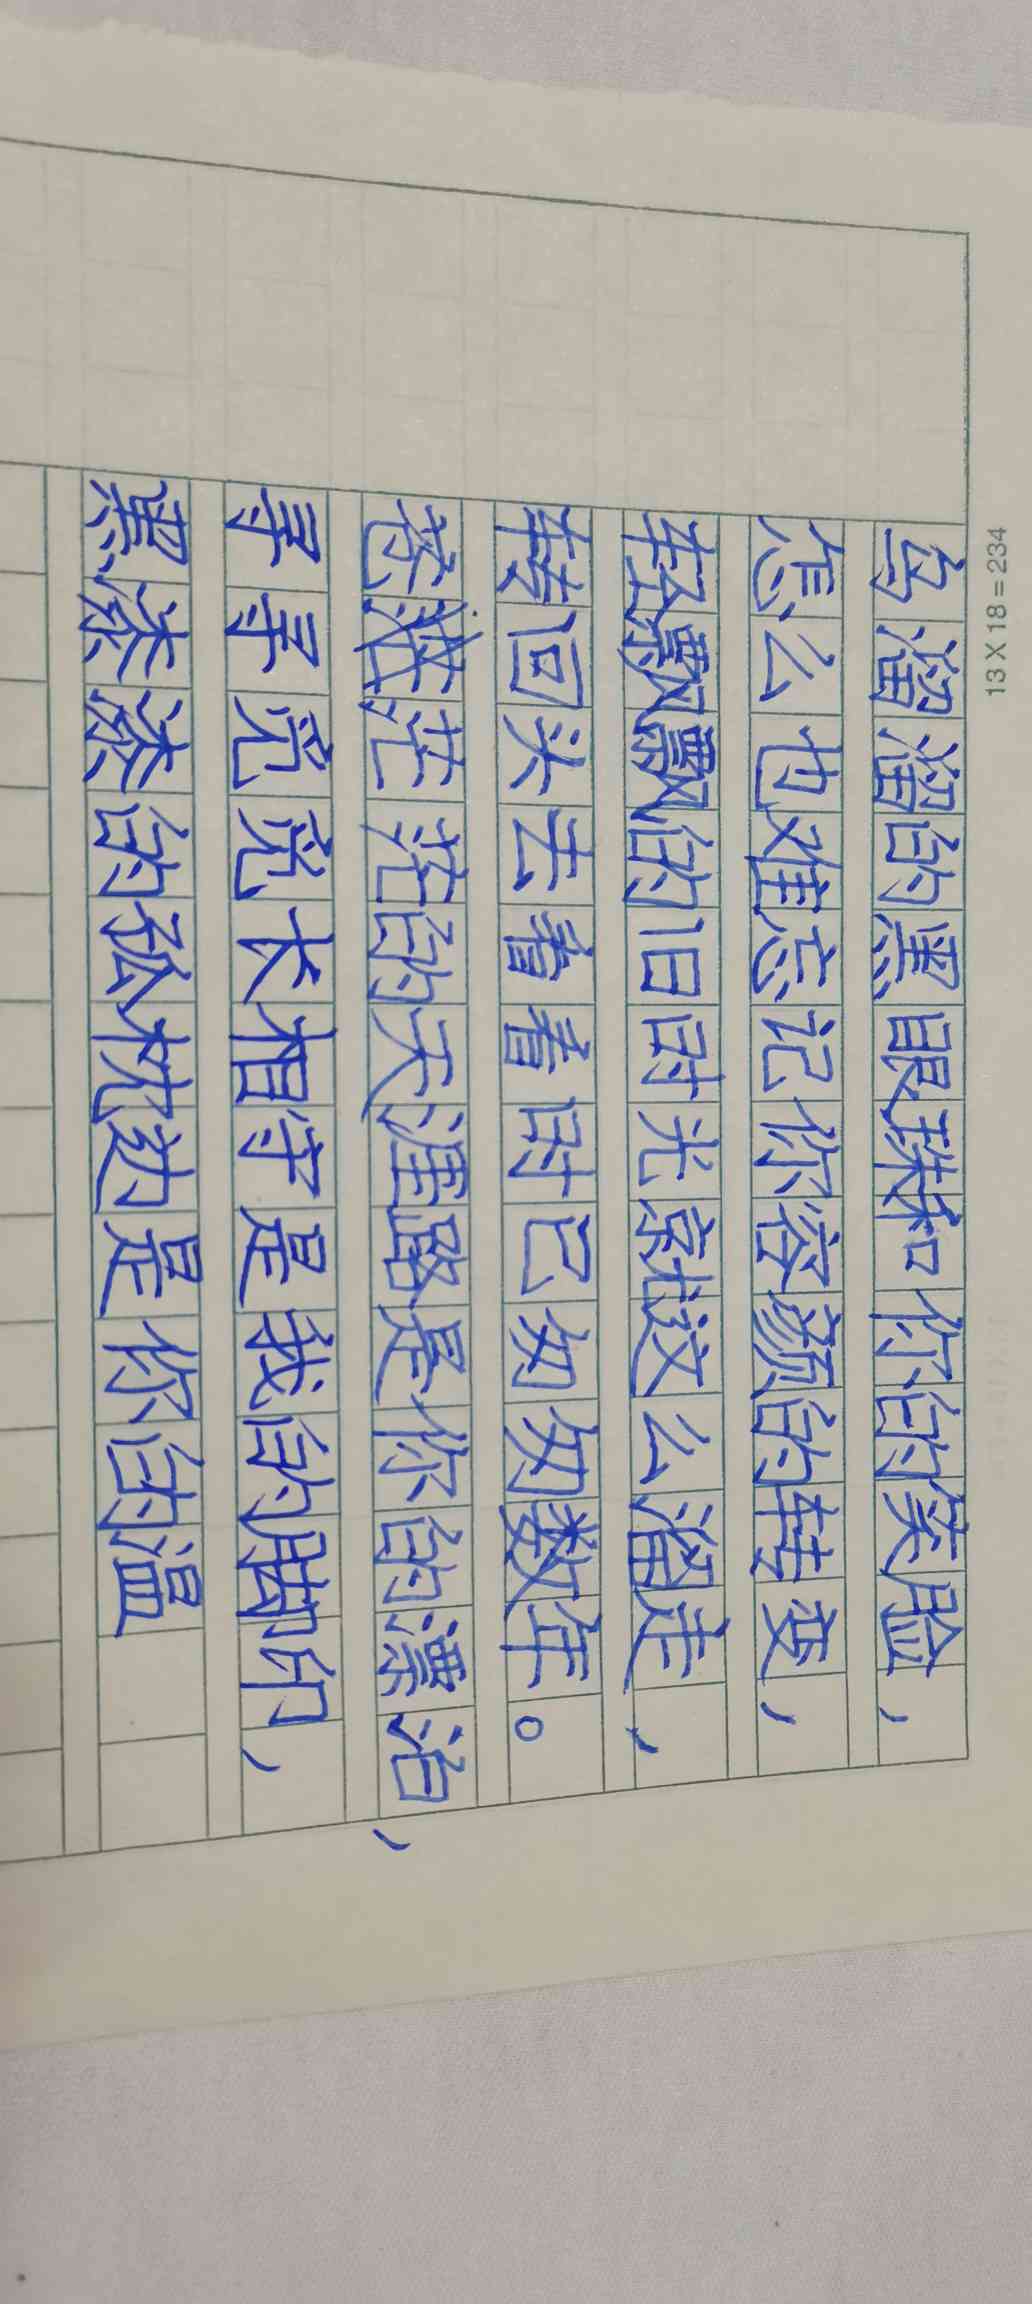 13 X 18 = 234
乌溜溜的黑眼珠和你的笑脸,
怎么也难忘记你容颜的转变,
轻飘飘的旧时光就这么溜走,
转回头去看看时已匆匆数年。
苍茫茫的天涯路是你的漂泊,
寻寻觅觅长相守是我的脚印,
黑漆漆的孤枕边是你的温